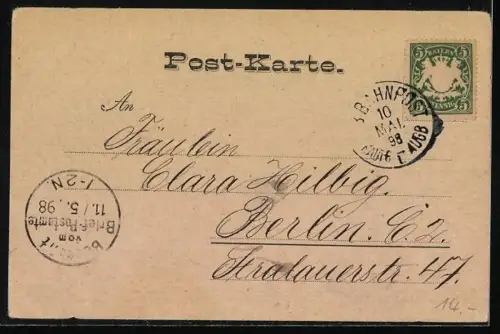 Post-Karte.
BAYERN
5 5
5 PFENNIG 5
BAHNPOST
10
MAI.
98
An
Fräulein
Clara Hilbig.
Berlin. C2.
Stralauerstr. 47.
Bestellt
vom
Brief-Postamte
11./5. 98
1-2N.
14.-